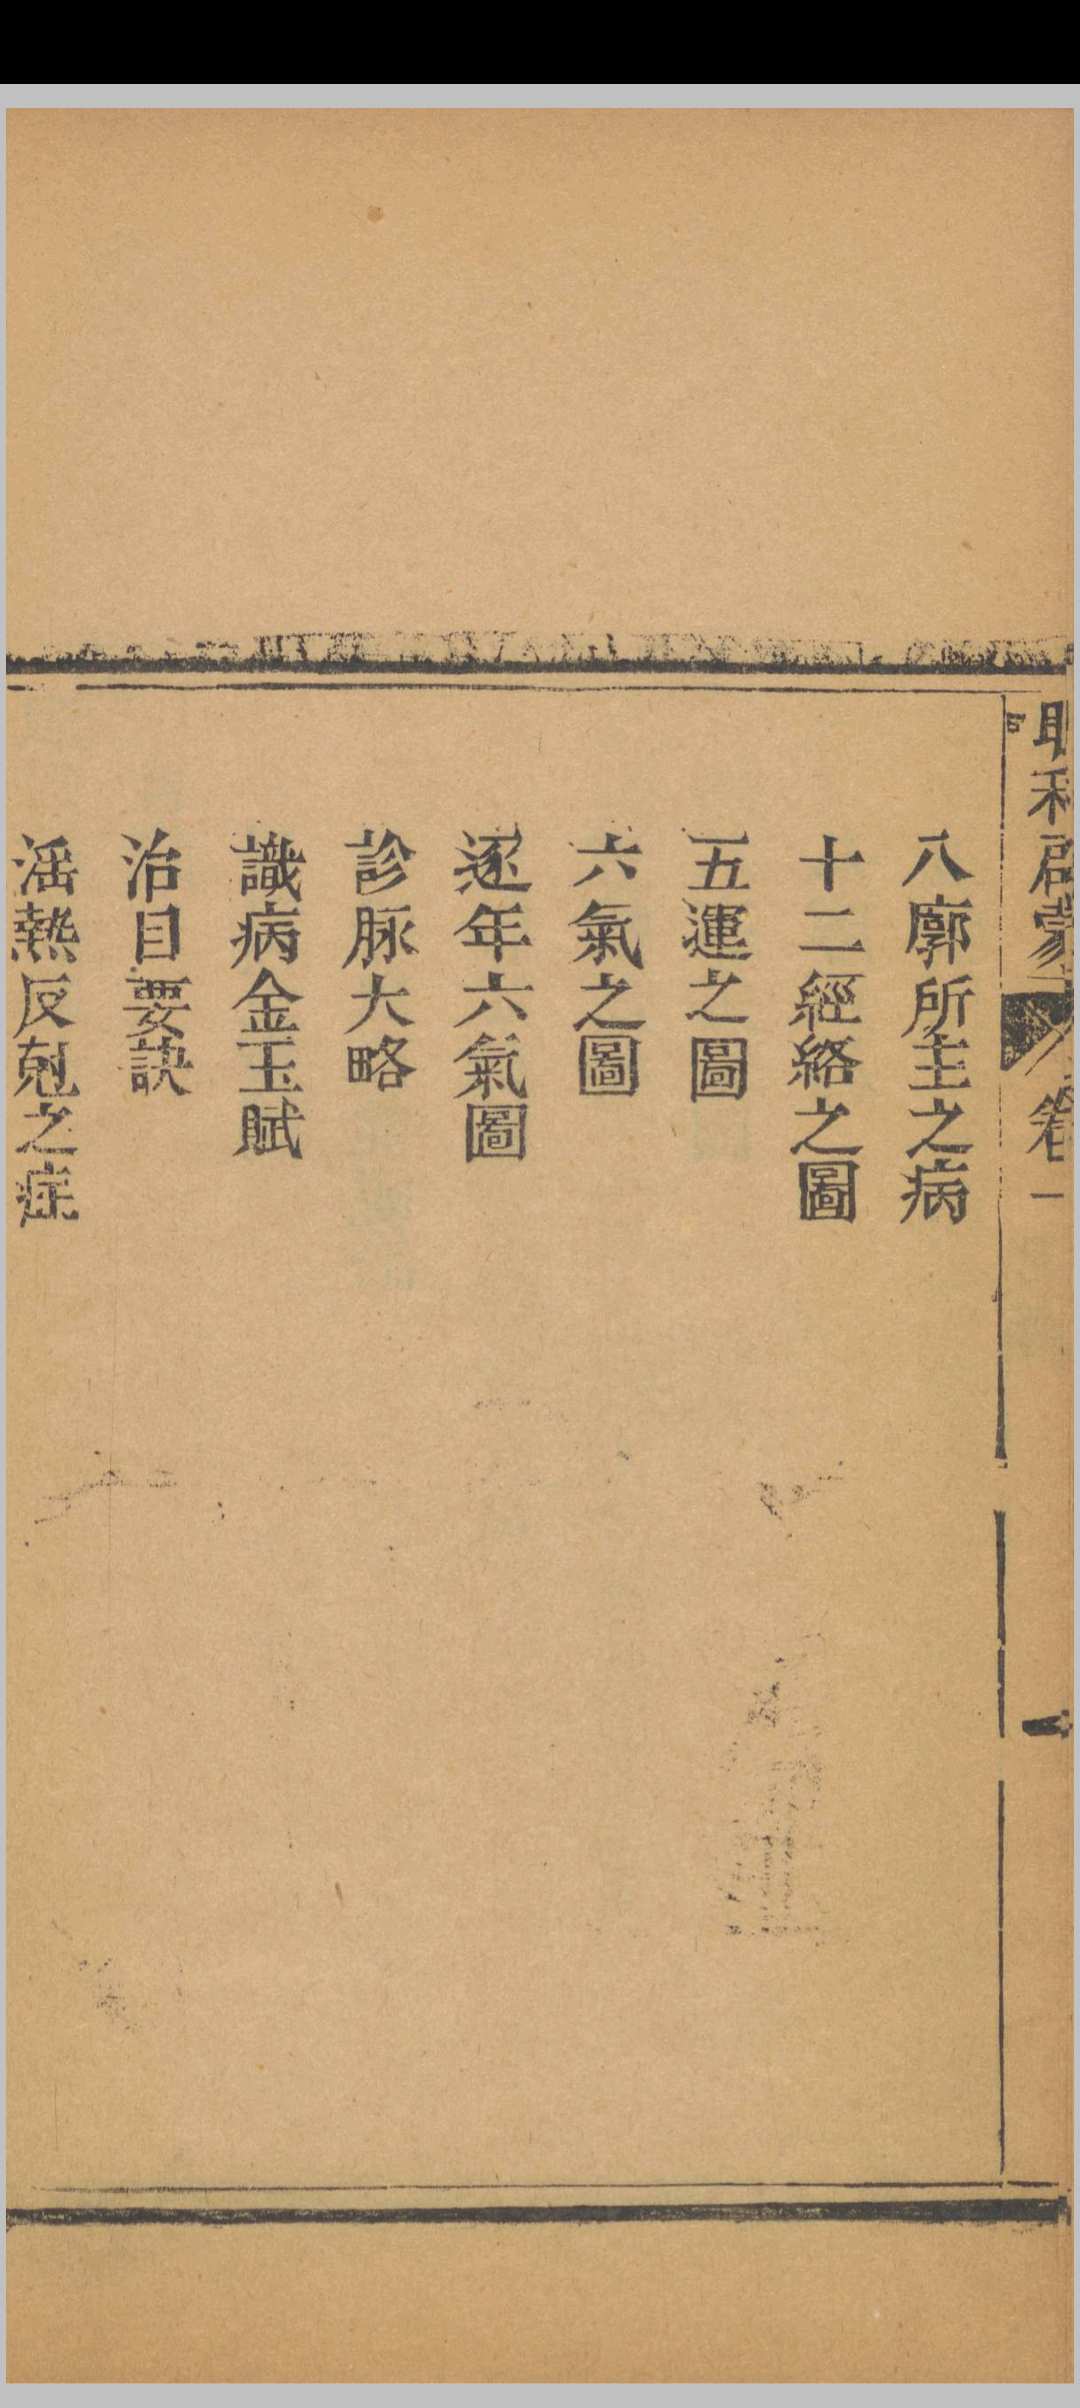 眼科啟蒙 卷一
八廓所主之病
十二經絡之圖
五運之圖
六氣之圖
逐年六氣圖
診脉大略
識病金玉賦
治目要訣
濕熱反剋之症